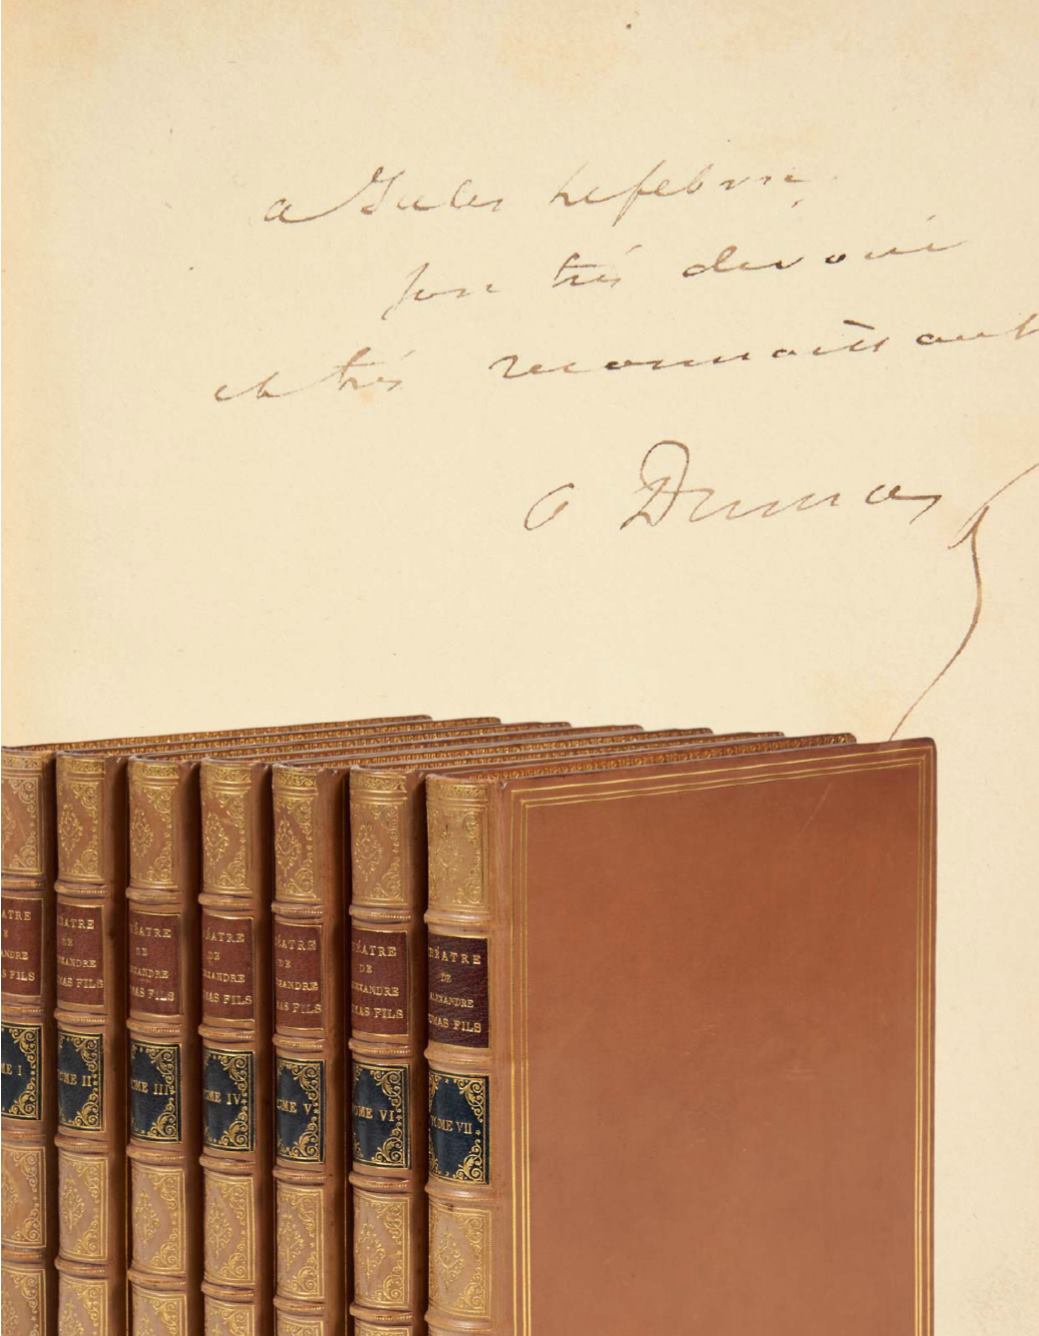 a Jules Lefebvre,
son très dévoué
et très reconnaissant
A Dumas
ATRE
E
ANDRE
S FILS
ME I
ÉATRE
DE
EXANDRE
MAS FILS
OME II
ÉATRE
DE
XANDRE
MAS FILS
OME III
ÉATRE
DE
EXANDRE
MAS FILS
OME IV
ÉATRE
DE
EXANDRE
MAS FILS
OME V
HÉATRE
DE
LEXANDRE
UMAS FILS
TOME VI
THÉATRE
DE
ALEXANDRE
DUMAS FILS
TOME VII